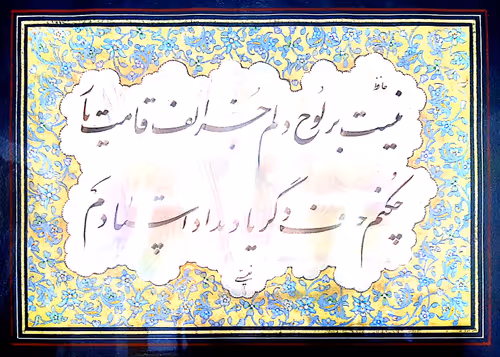 حافظ
نیست بر لوح دلم جز الف قامت یار
چکنم حرف دگر یاد نداد استادم